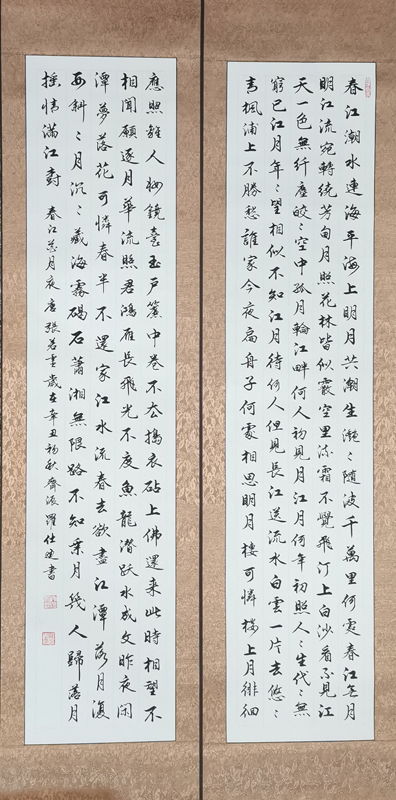 春江潮水連海平海上明月共潮生灧〻隨波千萬里何處春江無月
明江流宛轉繞芳甸月照花林皆似霰空里流霜不覺飛汀上白沙看不見江
天一色無纤塵皎〻空中孤月輪江畔何人初見月江月何年初照人〻生代〻無
窮已江月年〻望相似不知江月待何人但見長江送流水白雲一片去悠〻
青楓浦上不勝愁誰家今夜扁舟子何處相思明月樓可憐樓上月徘徊
應照離人妝鏡臺玉戶簾中卷不去搗衣砧上佛還来此時相望不
相聞願逐月華流照君鴻雁長飛光不度魚龍潛跃水成文昨夜闲
潭夢落花可憐春半不還家江水流春去欲盡江潭落月復
西斜〻月沉〻藏海霧碣石瀟湘無限路不知乘月幾人歸落月
摇情滿江樹 春江花月夜唐張若虛歲在辛丑初秋齊派羅仕建書